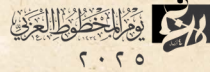 يوم المخطوط العربي
٢٠٢٥